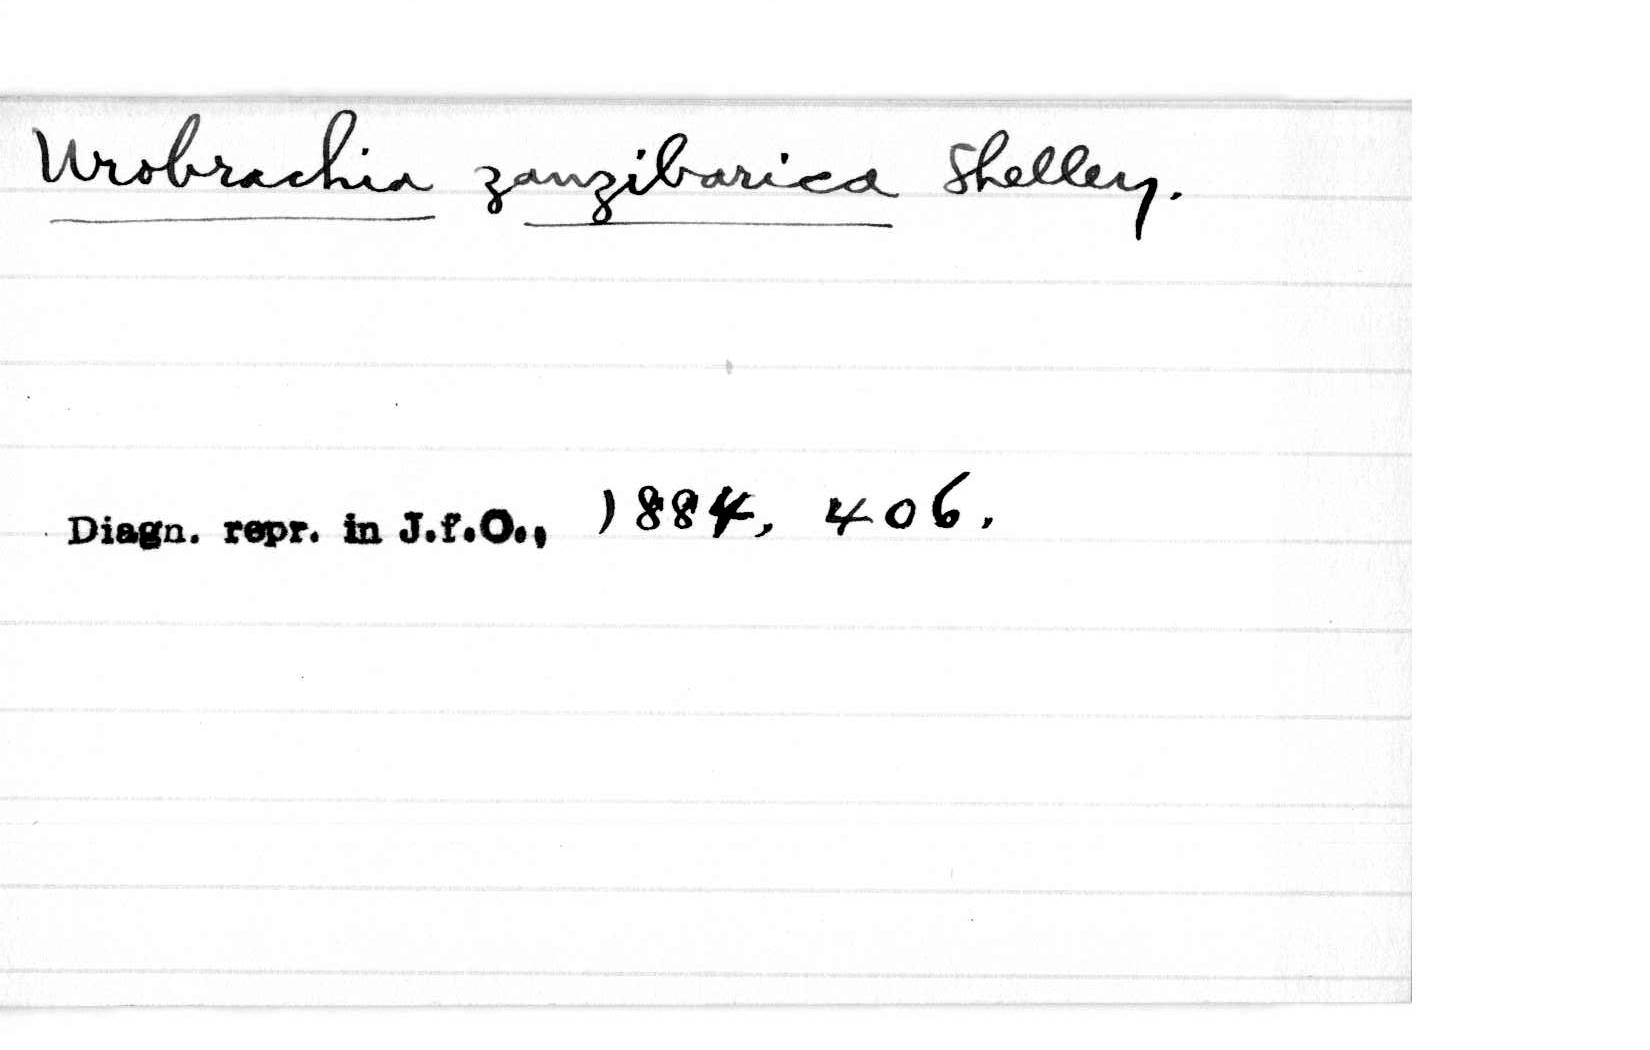 Urobrachia zanzibarica Shelley.
Diagn. repr. in J.f.O., 1884, 406.